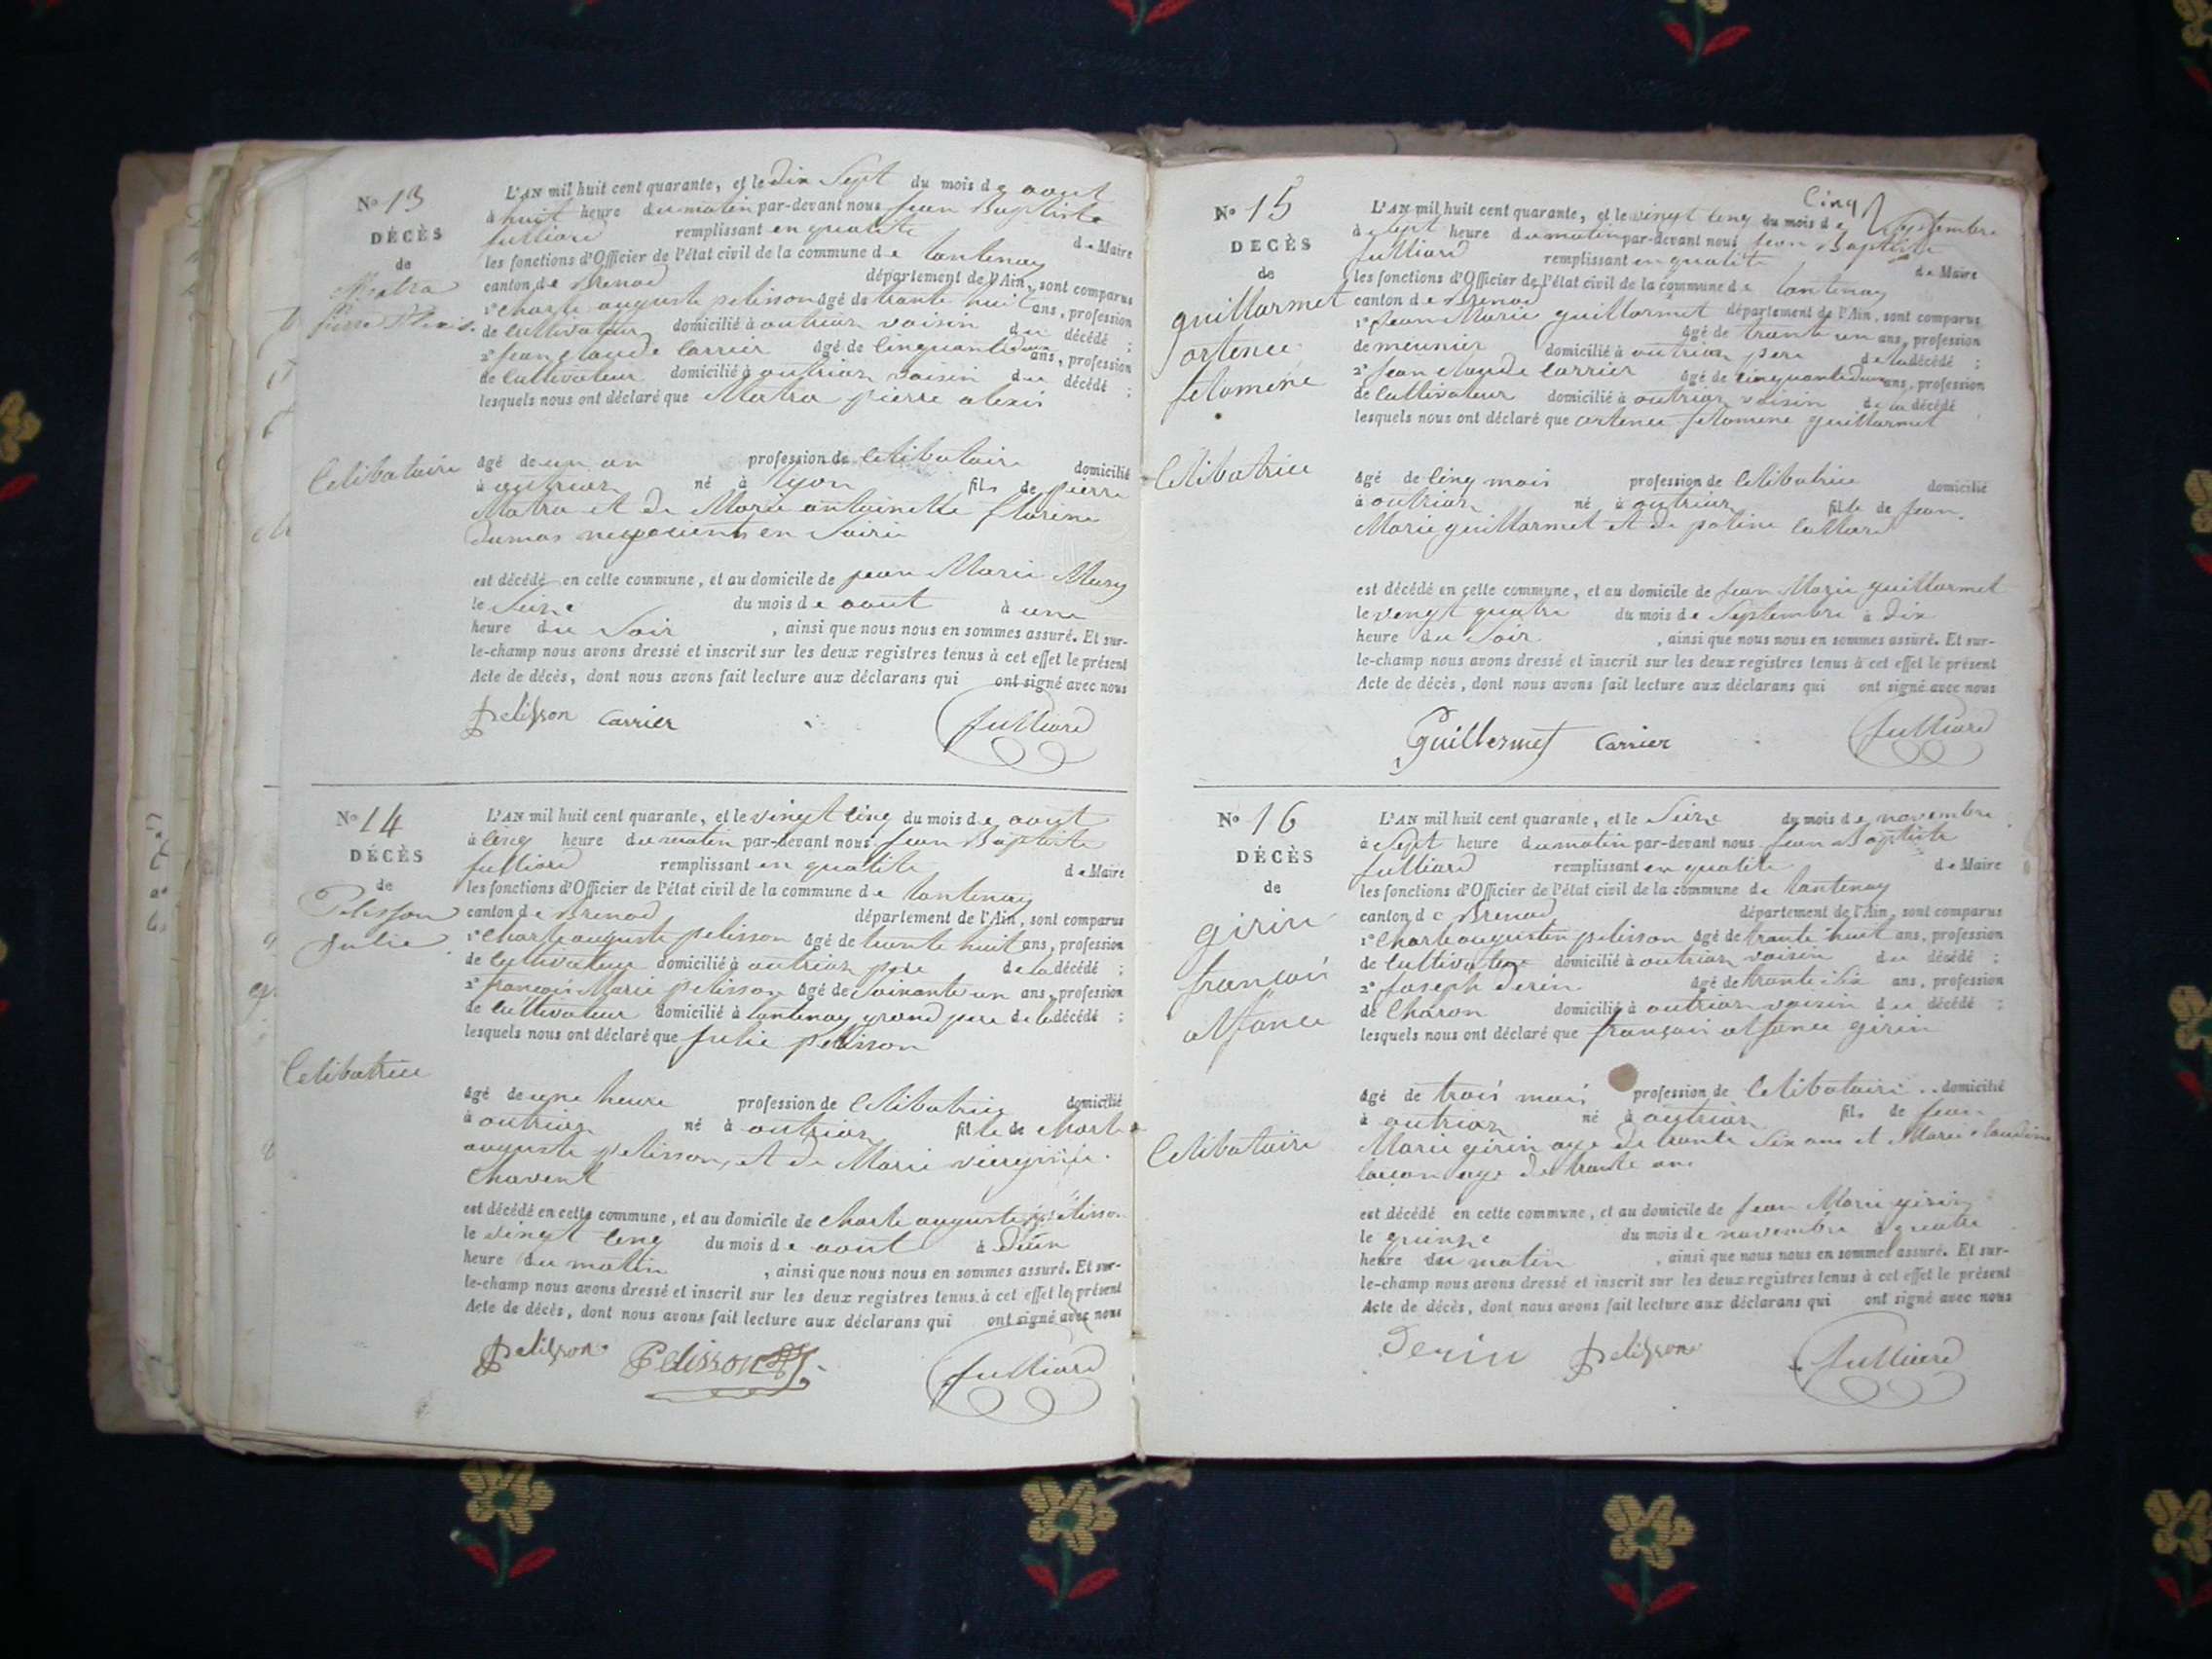 No 13
DÉCÈS
de
Matra
pierre Alexis
Celibataire
L'AN mil huit cent quarante, et le Dix Sept du mois de aout
à huit heure du matin par-devant nous Jean Baptiste
Julliard remplissant en qualité de Maire
les fonctions d'Officier de l'état civil de la commune de lantenay
canton de Brenod département de l'Ain, sont comparus
1° Charle auguste pelisson âgé de trante huit ans, profession
de Cultivateur domicilié à outriar voisin du décédé ;
2° Jean claude Carrier âgé de Cinquante deux ans, profession
de Cultivateur domicilié à outriar voisin du décédé ;
lesquels nous ont déclaré que Matra pierre alexis
âgé de un an profession de Celibataire domicilié
à outriar né à Lyon fils de pierre
Matra et de Marie antoinette florine
Dumas negocients en Soirie
est décédé en cette commune, et au domicile de jean Marie Mury
le Seize du mois de aout à une
heure du Soir , ainsi que nous nous en sommes assuré. Et sur-
le-champ nous avons dressé et inscrit sur les deux registres tenus à cet effet le présent
Acte de décès, dont nous avons fait lecture aux déclarans qui ont signé avec nous
Pelisson Carrier Julliard
No 14
DÉCÈS
de
Pelisson
Julie
Celibatrice
L'AN mil huit cent quarante, et le vingt Cinq du mois de aout
à Cinq heure du matin par-devant nous Jean Baptiste
Julliard remplissant en qualité de Maire
les fonctions d'Officier de l'état civil de la commune de lantenay
canton de Brenod département de l'Ain, sont comparus
1° Charle auguste pelisson âgé de trante huit ans, profession
de Cultivateur domicilié à outriar pere de la décédé ;
2° françois Marie pelisson âgé de Soixante un ans, profession
de Cultivateur domicilié à lantenay grand pere de la décédé ;
lesquels nous ont déclaré que Julie pelisson
âgé de une heure profession de Celibatrice domicilié
à outriar né à outriar fille de Charle
auguste pelisson, et de Marie viergnie
Chavent
est décédé en cette commune, et au domicile de Charle auguste pelisson
le vingt Cinq du mois de aout à
heure du matin , ainsi que nous nous en sommes assuré. Et sur-
le-champ nous avons dressé et inscrit sur les deux registres tenus à cet effet le présent
Acte de décès, dont nous avons fait lecture aux déclarans qui ont signé avec nous
Pelisson Pelisson Julliard
No 15
DECÈS
de
guillarmet
ortence
filomene
Celibatrice
Cinq
L'AN mil huit cent quarante, et le vingt Cinq du mois de Septembre
à Sept heure du matin par-devant nous Jean Baptiste
Julliard remplissant en qualité de Maire
les fonctions d'Officier de l'état civil de la commune de lantenay
canton de Brenod département de l'Ain, sont comparus
1° Jean Marie guillarmet âgé de trante un ans, profession
de meunier domicilié à outriar pere de la décédé ;
2° Jean claude Carrier âgé de Cinquante deux ans, profession
de Cultivateur domicilié à outriar voisin de la décédé
lesquels nous ont déclaré que ortence filomene guillarmet
âgé de Cinq mois profession de Celibatrice domicilié
à outriar né à outriar fille de Jean
Marie guillarmet et de poline
est décédé en cette commune, et au domicile de Jean Marie guillarmet
le vengt quatre du mois de Septembre à Dix
heure du Soir , ainsi que nous nous en sommes assuré. Et sur-
le-champ nous avons dressé et inscrit sur les deux registres tenus à cet effet le présent
Acte de décès, dont nous avons fait lecture aux déclarans qui ont signé avec nous
Guillermet Carrier Julliard
No 16
DÉCÈS
de
girin
francois
alfonce
Celibataire
L'AN mil huit cent quarante, et le Seize du mois de novembre
à Sept heure du matin par-devant nous Jean Baptiste
Julliard remplissant en qualité de Maire
les fonctions d'Officier de l'état civil de la commune de lantenay
canton de Brenod département de l'Ain, sont comparus
1° Charle augustin pelisson âgé de trante huit ans, profession
de Cultivateur domicilié à outriar voisin du décédé ;
2° Joseph Serin âgé de trante Six ans, profession
de Charon domicilié à outriar voisin du décédé ;
lesquels nous ont déclaré que françois alfonce girin
âgé de trois mois profession de Celibataire domicilié
à outriar né à outriar fils de Jean
Marie girin age de trante Six ans et Marie claudine
age de trante ans
est décédé en cette commune, et au domicile de Jean Marie girin
le quinze du mois de novembre à quatre
heure du matin , ainsi que nous nous en sommes assuré. Et sur-
le-champ nous avons dressé et inscrit sur les deux registres tenus à cet effet le présent
Acte de décès, dont nous avons fait lecture aux déclarans qui ont signé avec nous
Serin Pelisson Julliard